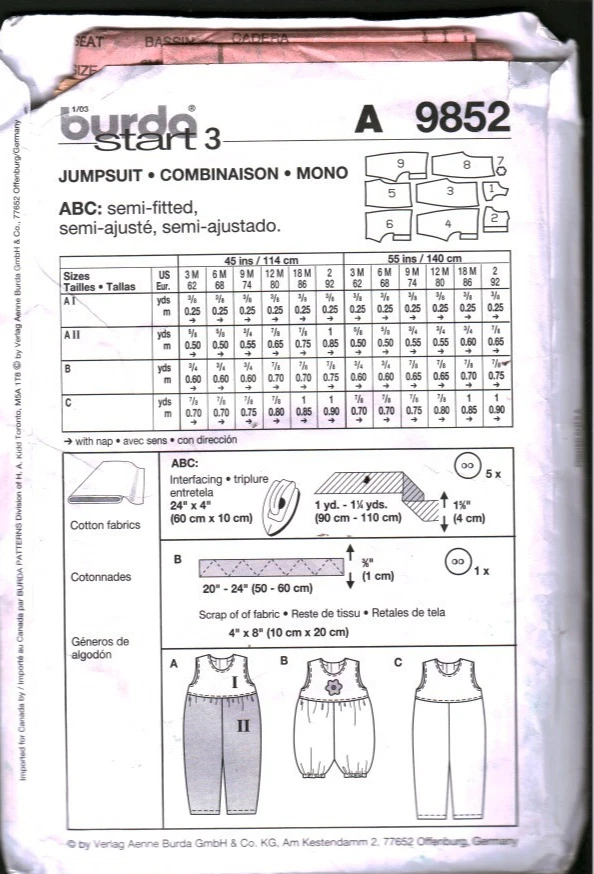 SEAT BASSIN CADERA
SIZE
1/03
burda®
start 3
A 9852
JUMPSUIT • COMBINAISON • MONO
ABC: semi-fitted,
semi-ajusté, semi-ajustado.
9 8 7
5 3 1
6 4 2
45 ins / 114 cm 55 ins / 140 cm
Sizes US 3 M 6 M 9 M 12 M 18 M 2 3 M 6 M 9 M 12 M 18 M 2
Tailles • Tallas Eur. 62 68 74 80 86 92 62 68 74 80 86 92
A I yds 3/8 3/8 3/8 3/8 3/8 3/8 3/8 3/8 3/8 3/8 3/8 3/8
m 0.25 0.25 0.25 0.25 0.25 0.25 0.25 0.25 0.25 0.25 0.25 0.25
→ → → → → → → → → → → →
A II yds 5/8 5/8 3/4 7/8 7/8 1 5/8 5/8 3/4 3/4 3/4 7/8
m 0.50 0.50 0.55 0.65 0.75 0.85 0.50 0.50 0.55 0.55 0.60 0.65
→ → → → → → → → → → → →
B yds 3/4 3/4 3/4 7/8 7/8 7/8 3/4 3/4 7/8 7/8 7/8 7/8
m 0.60 0.60 0.60 0.70 0.70 0.75 0.60 0.60 0.65 0.65 0.70 0.75
→ → → → → → → → → → → →
C yds 7/8 7/8 7/8 7/8 1 1 7/8 7/8 7/8 7/8 1 1
m 0.70 0.70 0.75 0.80 0.85 0.90 0.70 0.70 0.75 0.80 0.85 0.90
→ → → → → → → → → → → →
→ with nap • avec sens • con dirección
Cotton fabrics
Cotonnades
Géneros de
algodón
ABC:
Interfacing • triplure
entretela
24" x 4"
(60 cm x 10 cm)
1 yd. - 1¼ yds.
(90 cm - 110 cm)
1⅝"
(4 cm)
5 x
B
⅜"
(1 cm)
1 x
20" - 24" (50 - 60 cm)
Scrap of of fabric • Reste de tissu • Retales de tela
4" x 8" (10 cm x 20 cm)
A B C
I
II
© by Verlag Aenne Burda GmbH & Co. KG, Am Kestendamm 2, 77652 Offenburg, Germany
Imported for Canada by / Importé au Canada par BURDA PATTERNS Division of H. A. Kidd Toronto, M5A 1T8 © by Verlag Aenne Burda GmbH & Co., 77652 Offenburg/Germany